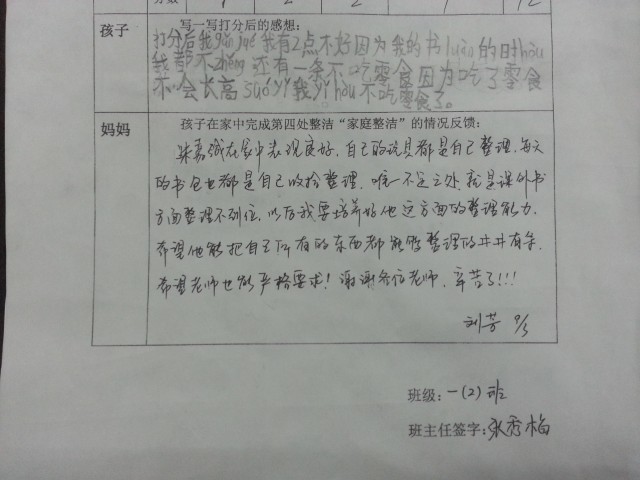 分数 1 2 2 1 12
孩子
写一写打分后的感想：
打分后我gǎn jué 我有2点不好因为我的书luàn的时hòu
我都不zhěng 还有一条不吃零食因为吃了零食
不会长高suǒ yǐ 我yǐ hòu 不吃零食了。
妈妈
孩子在家中完成第四处整洁“家庭整洁”的情况反馈：
朱嘉诚在家中表现良好，自己的玩具都是自己整理，每天
的书包也都是自己收拾整理。唯一不足之处，就是课外书
方面整理不到位，以后我要培养好他这方面的整理能力。
希望他能把自己所有的东西都能够整理的井井有条。
希望老师也能严格要求！谢谢各位老师，辛苦了!!!
刘芳 9/3
班级：一(2)班
班主任签字：张秀梅